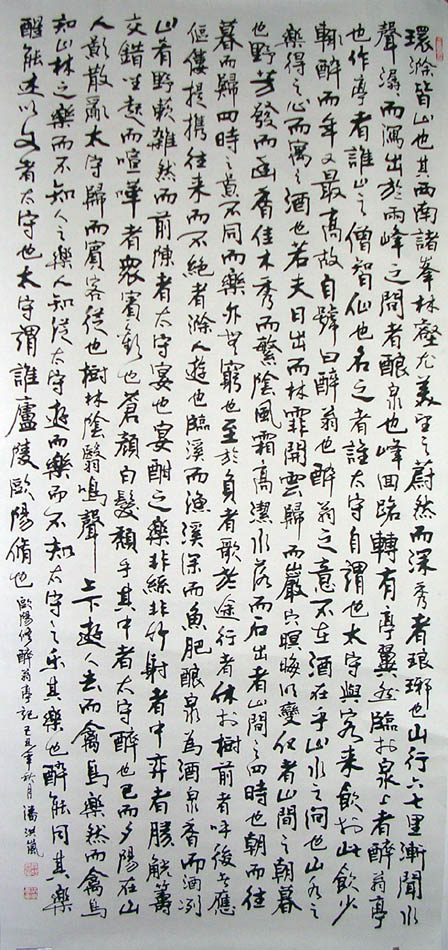 環滁皆山也其西南諸峯林壑尤美望之蔚然而深秀者琅琊也山行六七里漸聞水
聲潺而瀉出於兩峰之間者釀泉也峰回路轉有亭翼然臨於泉上者醉翁亭
也作亭者誰山之僧智仙也名之者誰太守自謂也太守與客來飲於此飲少
輒醉而年又最高故自號曰醉翁也醉翁之意不在酒在乎山水之间也山水之
樂得之心而寓之酒也若夫日出而林霏開雲歸而巖穴暝晦明變化者山間之朝暮
也野芳發而幽香佳木秀而繁陰風霜高潔水落而石出者山間之四時也朝而往
暮而歸四時之景不同而樂亦無窮也至於負者歌於途行者休於樹前者呼後者應
傴僂提攜往來而不絕者滁人遊也臨溪而漁溪深而魚肥釀泉為酒泉香而酒冽
山肴野蔌雜然而前陳者太守宴也宴酣之樂非絲非竹射者中弈者勝觥籌
交錯坐起而喧嘩者眾賓歡也蒼顏白髮頹乎其中者太守醉也已而夕陽在山
人影散亂太守歸而賓客從也樹林陰翳鳴聲上下遊人去而禽鳥樂然而禽鳥
知山林之樂而不知人之樂人知從太守遊而樂而不知太守之乐其樂也醉能同其樂
醒能述以文者太守也太守謂誰廬陵歐陽脩也 歐陽修醉翁亭記己丑年秋月潘洪嵐